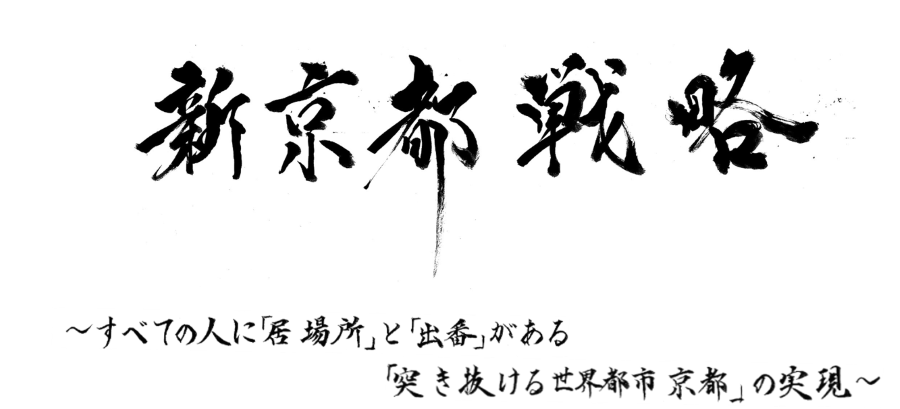 新京都戦略
～すべての人に「居場所」と「出番」がある
「突き抜ける世界都市 京都」の実現～